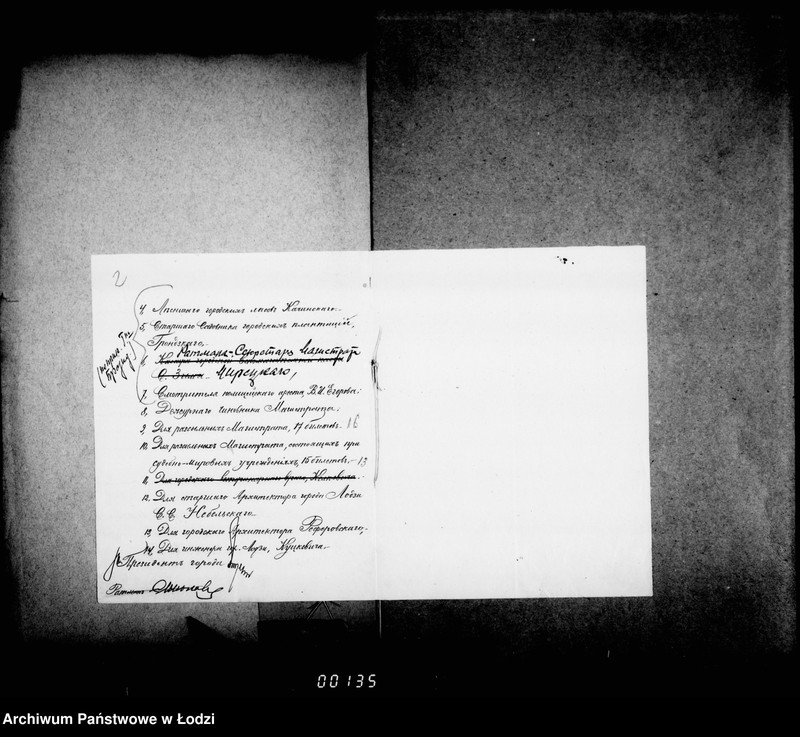 2
4, Лѣсничаго городскихъ лѣсовъ Качинскаго.
5, Старшаго Садовника городскихъ плантацій,
Гродзскаго,
6, Ратмана-Секретаря Магистрата
Мирецкаго,
7, Смотрителя полицейскаго ареста, В. И. Егорова;
8, Дежурнаго чиновника Магистрата;
9, Для разсыльныхъ Магистрата, 17 билетовъ. 16
10, Для разсыльныхъ Магистрата, состоящихъ при
судебно-мировыхъ учрежденіяхъ, 15 билетовъ. 13
11, Для городского Ветеринарнаго врача,
12, Для старшаго Архитектора города Лодзи
С. С. Небельскаго.
13, Для городского Архитектора
14, Для инженера гор. Лодзи, Кушкевича.
Президентъ города
Ратманъ
00135
Archiwum Państwowe w Łodzi